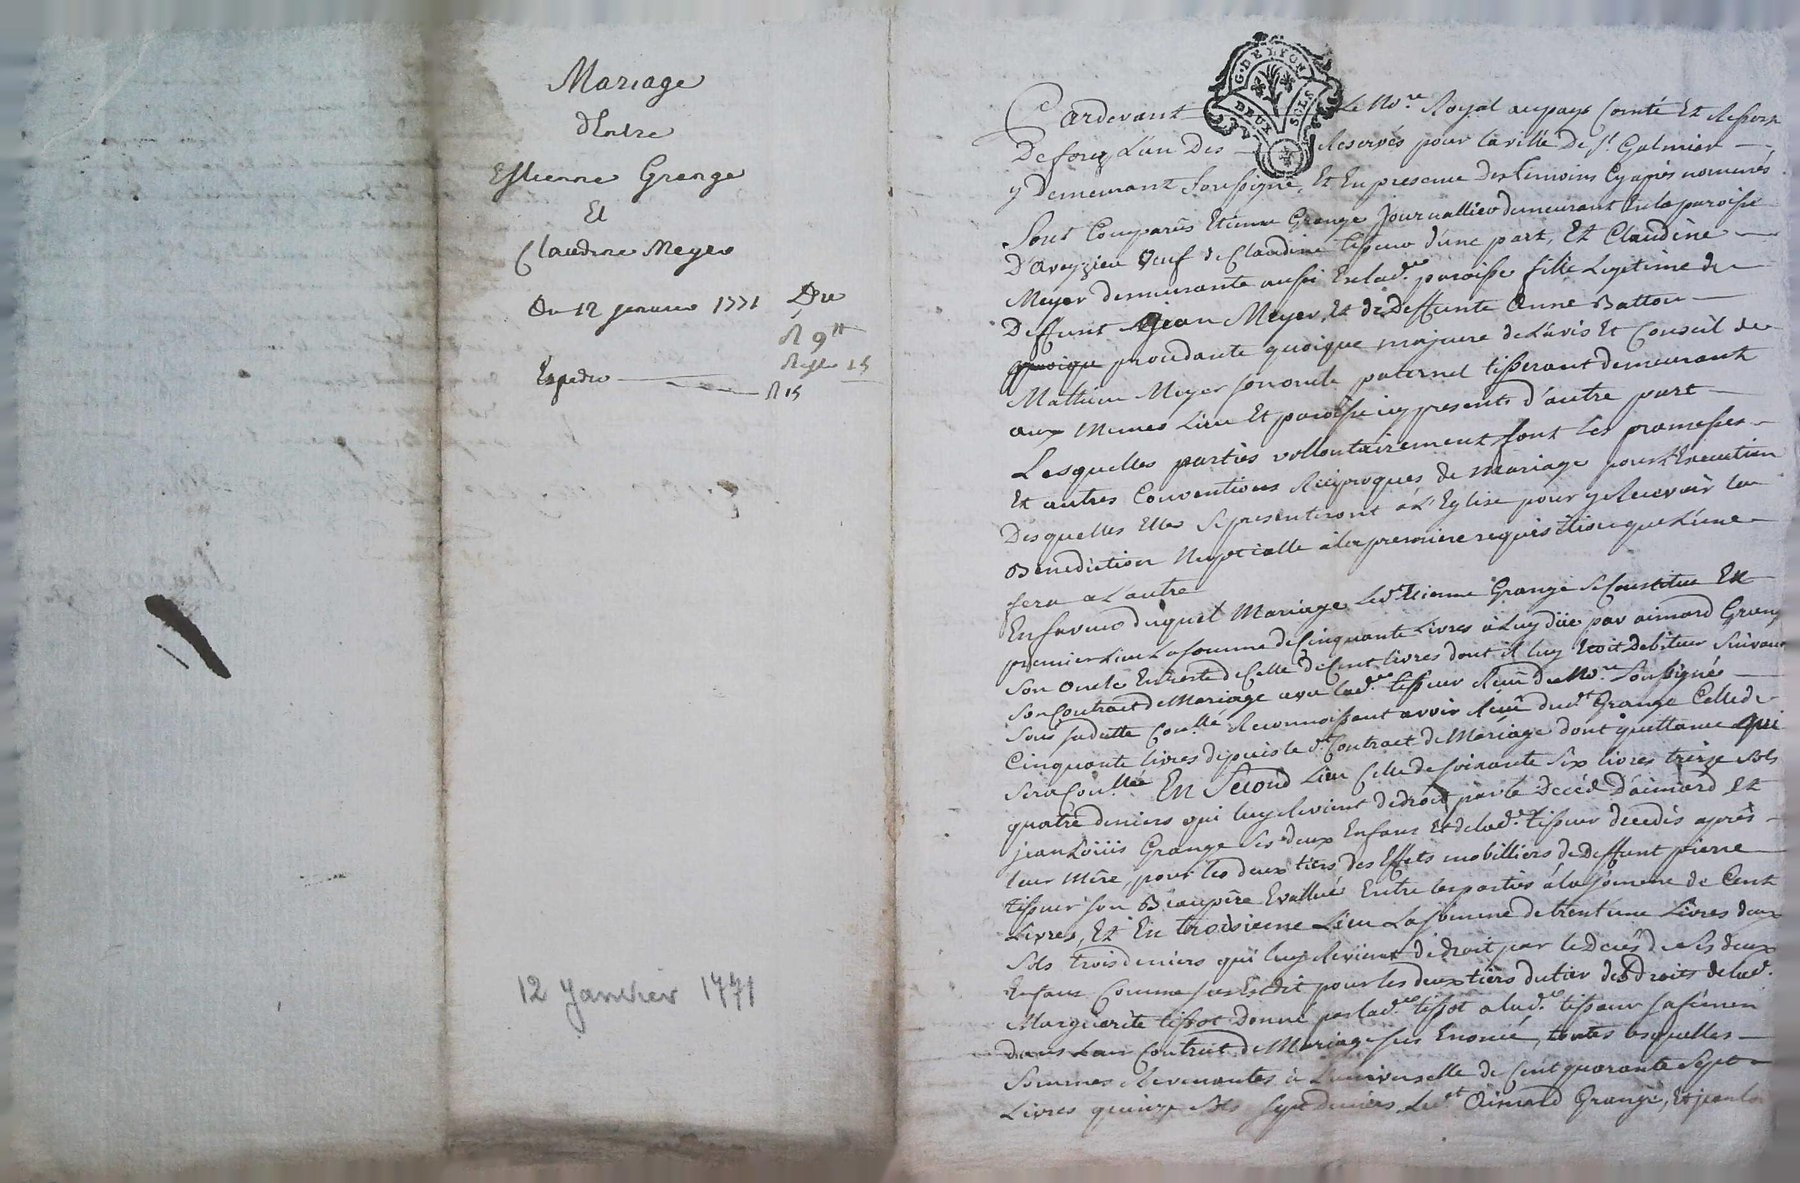 Mariage
d'Entre
Estienne Grange
Et
Claudine Meyer
Du 12 janvier 1771
Expedié
12 Janvier 1771
G. DE LYON
DEUX SOLS
Pardevant Le No.re Royal au pays Comté Et Ressort
De forez L'un Des Reservés pour la ville De St Galmier
y Demeurant Soussigné, Et En presence des temoins Cy après nommés
Sont Comparûs Etienne Grange Journallier demeurant En la paroisse
D'aveyzieu Veuf de Claudine tisseur d'une part, Et Claudine
Meyer demeurante aussi En lad.e paroisse fille Legitime de
Deffunt Jean Meyer, Et de Deffunte Anne Batton
quoique procedante quoique majeure de L'avis Et Conseil de
Mathieu Meyer son oncle paternel tisserant demeurant
aux mêmes Lieu Et paroisse icy presents d'autre part
Lesquelles parties vollontairement font les promesses
Et autres Conventions Reciproques de mariage pour L'Execution
Desquelles Elles Se presenteront à L'Eglise pour y Recevoir la
Benediction Nuptialle à la premiere requisition que L'une
fera a L'autre
En faveur duquel Mariage Led.t Etienne Grange Se Constitue En
premier Lieu La somme de Cinquante Livres à Luy düe par aimard Grange
Son oncle En reste de Celle de Cent livres dont il luy Etoit Debiteur Suivant
Son Contract de Mariage avec lad.e tisseur Reçû du No.re Soussigné
Sous sa datte Con.llé Reconnoissant avoir Reçû dud.t Grange Celle de
Cinquante livres depuis le d.t Contract de Mariage dont quittance qui
Sera Con.llée En Second Lieu Celle de soixante Six livres treize Sols
quatre deniers qui luy Revient de droit par le Decéd D'aimard Et
jean Loüis Grange Ses deux Enfans Et de lad.e tisseur decedés après
leur Mêre pour les deux tiers des Effets mobilliers de Deffunt pierre
tisseur son Beaupêre Evallüé Entre les parties à la somme de Cent
Livres, Et En troisieme Lieu La somme de trent'une Livres deux
Sols trois deniers qui luy Revient de droit par le Decés de Ses deux
Enfans Comme sus Est dit pour les deux tiers du tier des droits de lad.e
Marguerite tissot Donné par lad.e tissot a lad.e tisseur sa
dans Leur Contract de Mariage sus Enoncé, toutes lesquelles
Sommes Revenantes à L'universelle de Cent quarante Sept
Livres quinze Sols Sept deniers Led.t Aimard Grange, Et jean